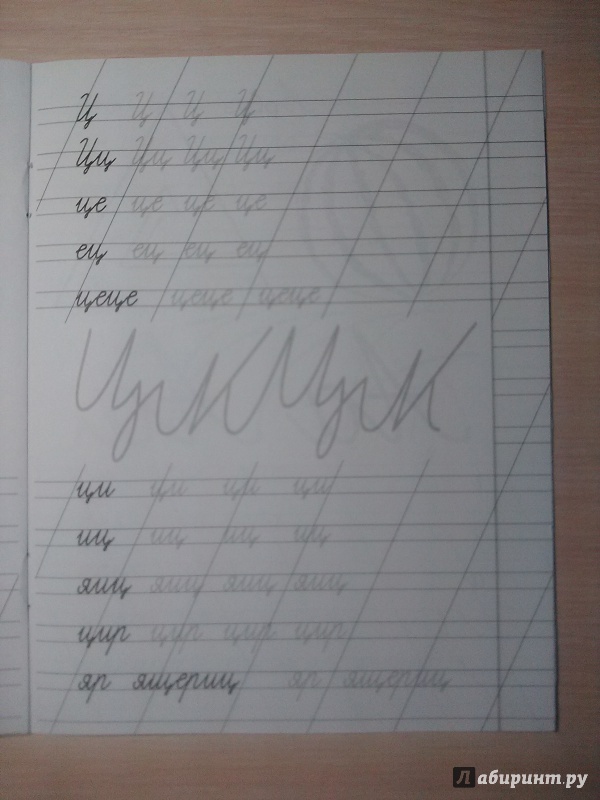 Ц Ц Ц Ц
Цц Цц Цц Цц
це це це це
ец ец ец ец
цеце цеце цеце
ци ци ци ци
иц иц иц иц
яиц яиц яиц яиц
цир цир цир цир
яр ящериц яр ящериц
Лабиринт.ру